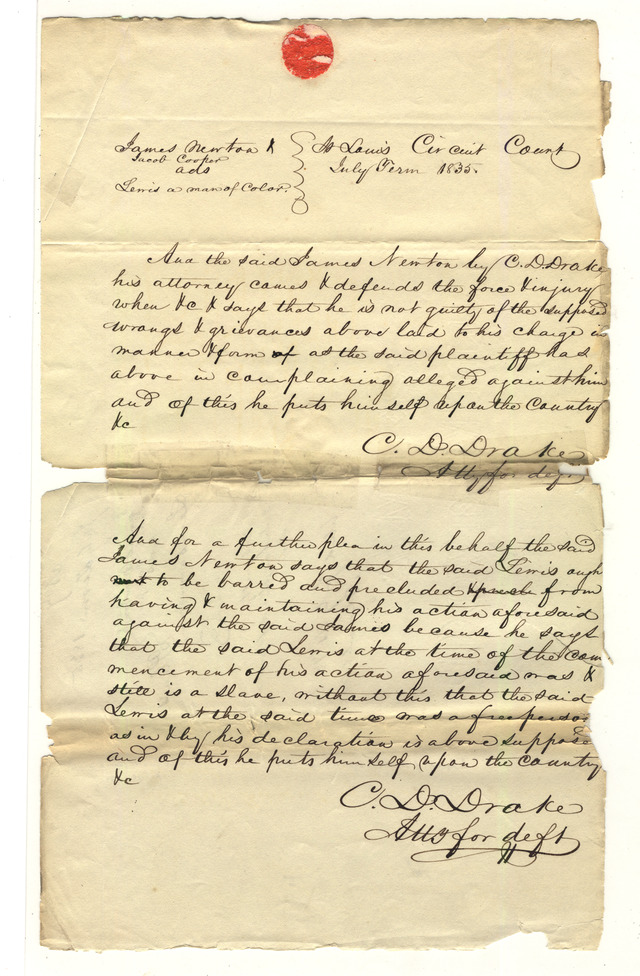 James Newton &
Jacob Cooper
ads
Lewis a man of Color.
St Louis Circuit Court
July Term 1835.
And the said James Newton by C. D. Drake
his attorney comes & defends the force & injury
when &c & says that he is not guilty of the supposed
wrongs & grievances above laid to his charge in
manner & form of as the said plaintiff has
above in complaining alleged against him
and of this he puts himself upon the Country
&c
C. D. Drake
Atty for deft
And for a further plea in this behalf the said
James Newton says that the said Lewis ough
to be barred and precluded from
having & maintaining his action aforesaid
against the said James because he says
that the said Lewis at the time of the com
mencement of his action aforesaid was &
still is a slave, without this that the said
Lewis at the said time was a free person
as in & by his declaration is above suppose
and of this he puts himself upon the Country
&c
C. D. Drake
Atty for deft